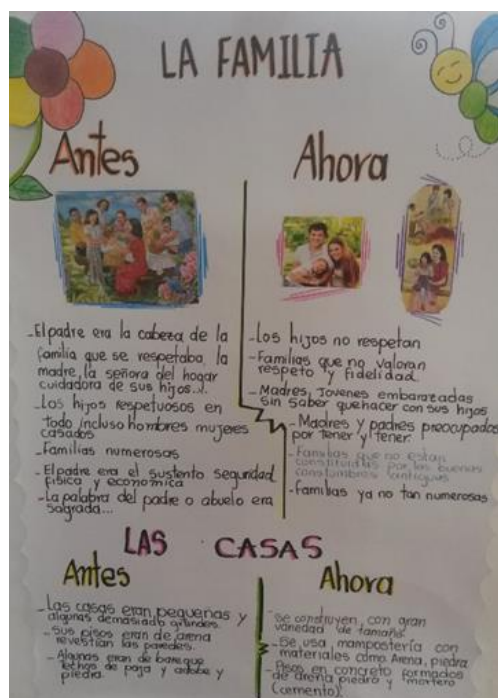 LA FAMILIA
Antes
-El padre era la cabeza de la
familia que se respetaba, la
madre, la señora del hogar
cuidadora de sus hijos...
-Los hijos respetuosos en
todo incluso hombres mujeres
casados
-Familias numerosas
-El padre era el sustento seguridad
física y económica
-La palabra del padre o abuelo era
sagrada...
Ahora
-Los hijos no respetan
-Familias que no valoran
respeto y fidelidad
-Madres, Jovenes embarazadas
sin saber que hacer con sus hijos
-Madres y padres preocupados
por tener y tener.
-Familias que no estan
constituidas por las buenas
constumbres antiguas
-Familias ya no tan numerosas
LAS CASAS
Antes
-Las casas eran pequeñas y
algunas demasiado grandes.
-Sus pisos eran de arena
revestian las paredes.
-Algunas eran de bareque
techos de paja y adobe y
piedra.
Ahora
-Se construyen con gran
variedad de tamaño.
-Se usa mampostería con
materiales como Arena, piedra
-Pisos en concreto formados
de arena piedra y mortero
(cemento).